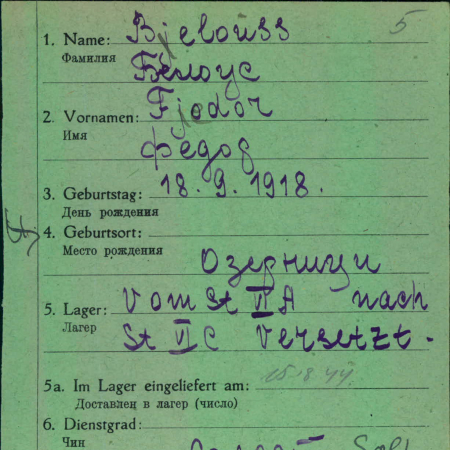 5
1. Name: Bjelouss
Фамилия Бѣлоус
2. Vornamen: Fjodor
Имя Федор
3. Geburtstag: 18. 9. 1918.
День рождения
4. Geburtsort:
Место рождения Озерници
5. Lager: Vom St VI A nach
Лагер St VI C versetzt.
5a. Im Lager eingeliefert am: 15.8.44
Доставлен в лагер (число)
6. Dienstgrad:
Чин